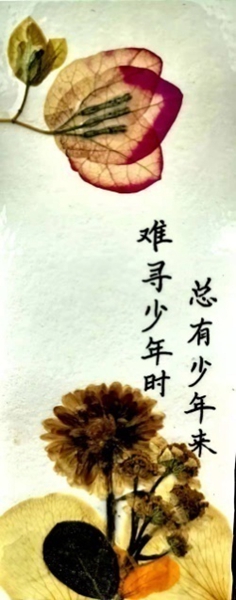 难寻少年时
总有少年来